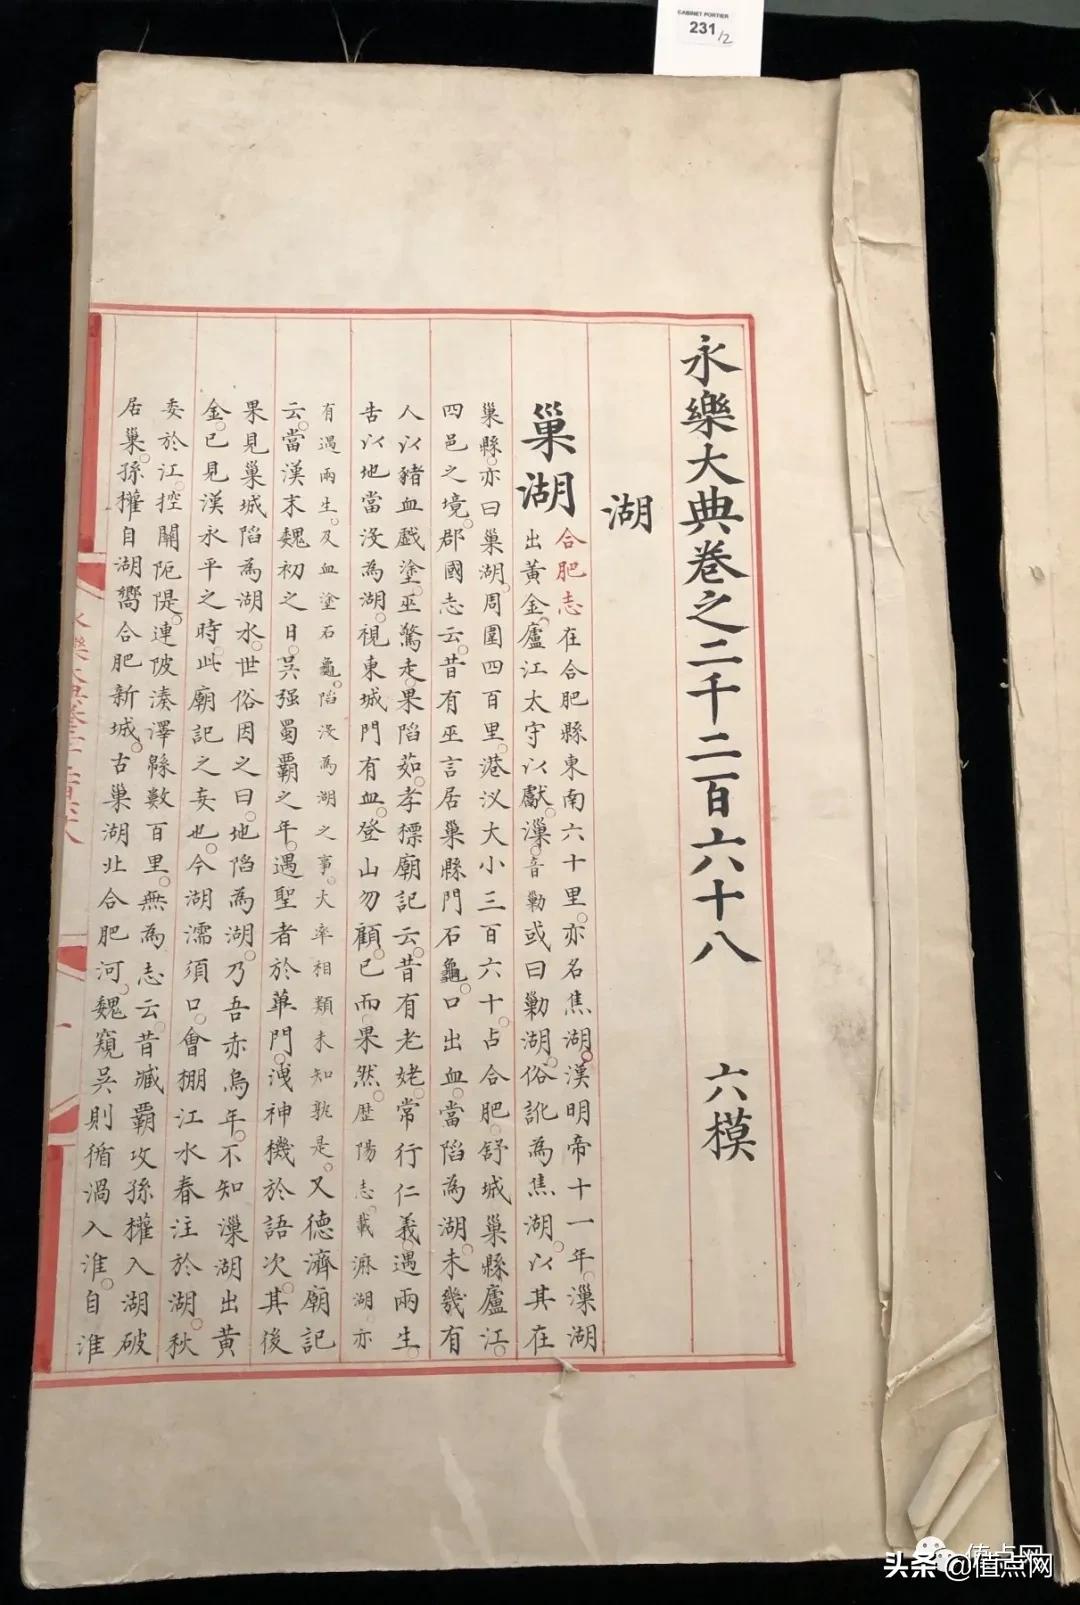 CABINET PORTIER
231/2
永樂大典卷之二千二百六十八　六模
湖
巢湖
合肥志在合肥縣東南六十里。亦名焦湖。漢明帝十一年。漅湖
出黃金。廬江太守以獻。漅。音勦或曰勦湖。俗訛為焦湖。以其在
巢縣。亦曰巢湖。周圍四百里。港汊大小三百六十。占合肥。舒城巢縣廬江。
四邑之境。郡國志云。昔有巫言居巢縣門石龜。口出血。當陷為湖。未幾有
人以豬血戲塗。巫驚走。果陷茹。孝標廟記云。昔有老姥。常行仁義遇兩生。
告以地當沒為湖。視東城門有血。登山勿顧。已而果然。歷陽志。載麻湖。亦
有遇兩生。及血塗石龜。陷沒為湖之事。大率相類未知孰是。又德濟廟記
云。當漢末魏初之日。吳强蜀霸之年。遇聖者於蓽門。洩神機於語次。其後
果見巢城陷為湖水。世俗因之曰。地陷為湖。乃吾赤烏年。不知漅湖出黃
金。已見漢永平之時。此廟記之妄也。今湖濡須口。會掤江水春注於湖。秋
委於江。控關阨隄。連陂湊澤緜數百里。無為志云。昔臧霸攻孫權入湖破
居巢。孫權自湖嚮合肥新城。古巢湖北合肥河。魏窺吳則循渦入淮。自淮
永樂大典卷二千二百六十八
一
头条 @值点网
值点网